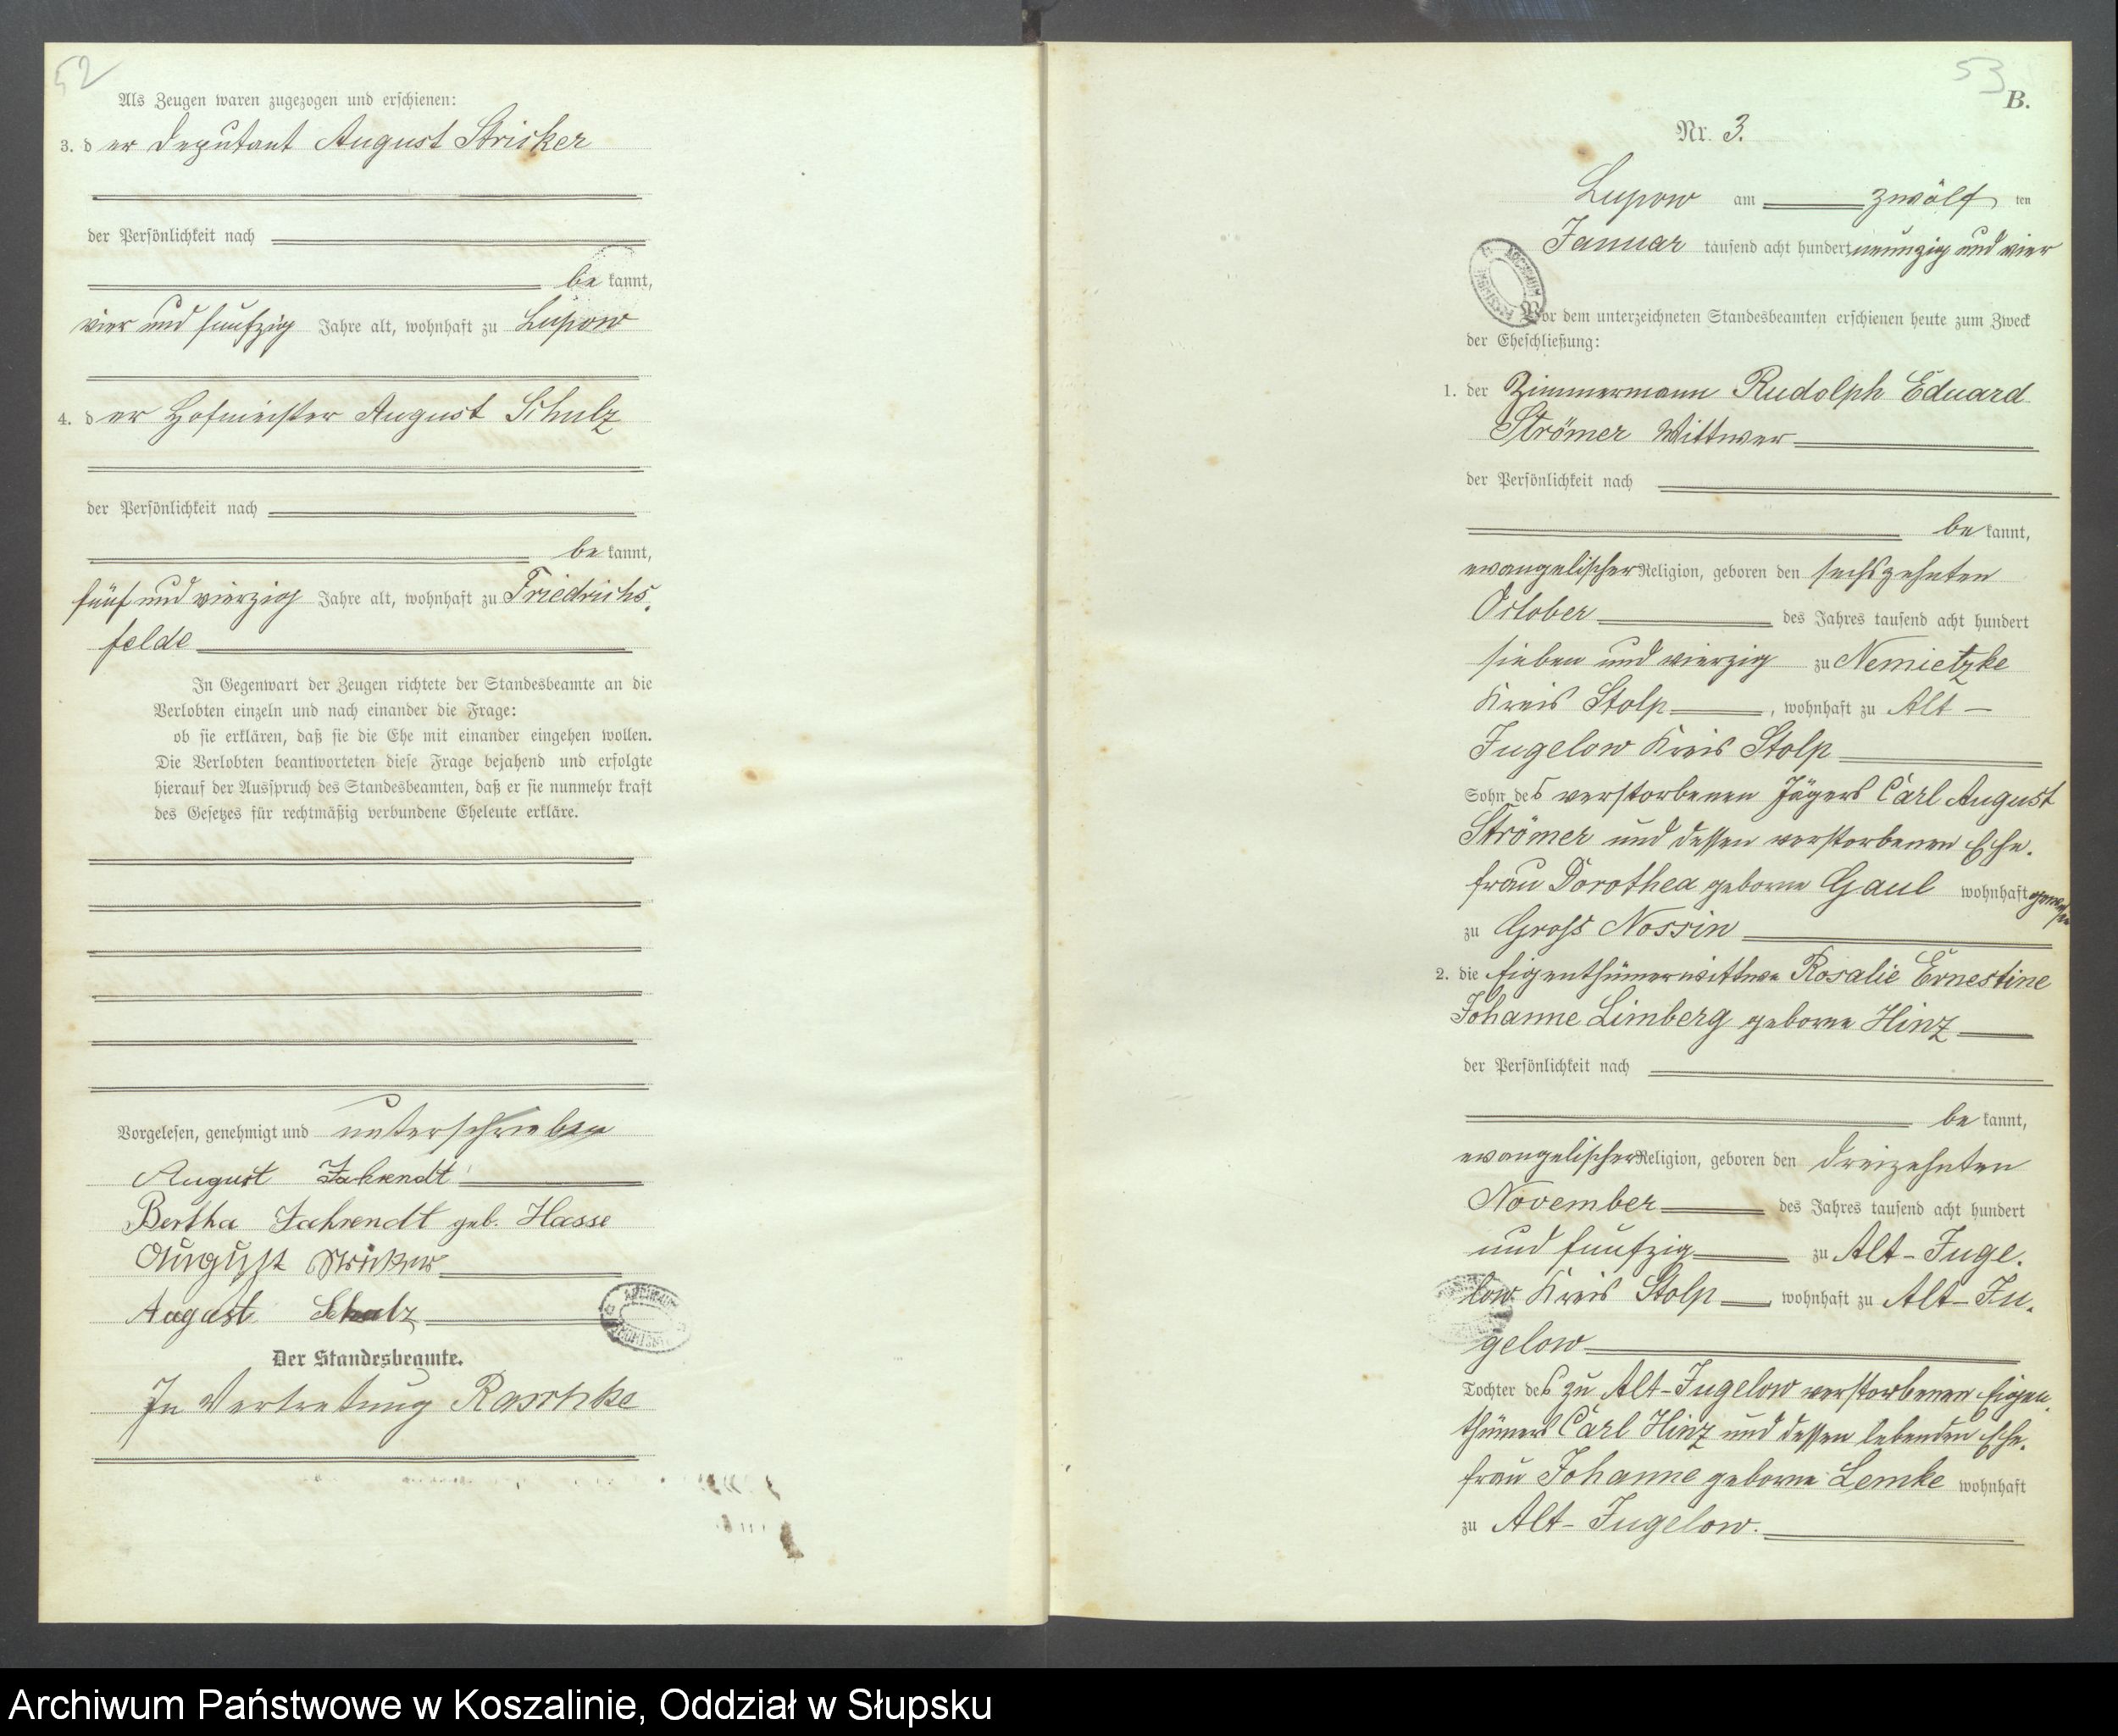 52
Als Zeugen waren zugezogen und erschienen:
3. der Deputant August Stricker
der Persönlichkeit nach
be kannt,
vier und funfzig Jahre alt, wohnhaft zu Lupow
4. der Hofmeister August Schulz
der Persönlichkeit nach
be kannt,
fünf und vierzig Jahre alt, wohnhaft zu Friedrichs-
felde
In Gegenwart der Zeugen richtete der Standesbeamte an die
Verlobten einzeln und nach einander die Frage:
ob sie erklären, daß sie die Ehe mit einander eingehen wollen.
Die Verlobten beantworteten diese Frage bejahend und erfolgte
hierauf der Ausspruch des Standesbeamten, daß er sie nunmehr kraft
des Gesetzes für rechtmäßig verbundene Eheleute erkläre.
Vorgelesen, genehmigt und unterschrieben
August
Bertha geb. Hasse
August Stricker
August Schulz
Der Standesbeamte.
In Vertretung Raschke
53
B.
Nr. 3.
Lupow am zwölf ten
Januar tausend acht hundert neunzig und vier
Vor dem unterzeichneten Standesbeamten erschienen heute zum Zweck
der Eheschließung:
1. der Zimmermann Rudolph Eduard
Strömer Wittwer
der Persönlichkeit nach
be kannt,
evangelischer Religion, geboren den sechszehnten
October des Jahres tausend acht hundert
sieben und vierzig zu Nemietzke
Kreis Stolp, wohnhaft zu Alt-
Jugelow Kreis Stolp
Sohn des verstorbenen Jägers Carl August
Strömer und dessen verstorbenen Ehe-
frau Dorothea geborne Gaul wohnhaft gewesen
zu Gross Nossin
2. die Eigenthümerwittwe Rosalie Ernestine
Johanne Limberg geborne Hinz
der Persönlichkeit nach
be kannt,
evangelischer Religion, geboren den dreizehnten
November des Jahres tausend acht hundert
und funfzig zu Alt-Juge-
low Kreis Stolp, wohnhaft zu Alt-Ju-
gelow
Tochter des zu Alt-Jugelow verstorbenen Eigen-
thümers Carl Hinz und dessen lebenden Ehe-
frau Johanne geborne Lemke wohnhaft
zu Alt-Jugelow.
Archiwum Państwowe w Koszalinie, Oddział w Słupsku